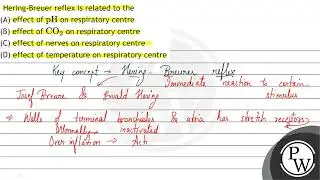 Hering-Breuer reflex is related to the
(A) effect of pH on respiratory centre
(B) effect of CO₂ on respiratory centre
(C) effect of nerves on respiratory centre
(D) effect of temperature on respiratory centre
Key concept → Hering - Breurer reflex
Immediate reaction to certain
Josef Breure & Ewald Hering stimulus
⇒ Walls of terminal bronchioles & atria has stretch receptors
Normally inactivated
Over inflation → Act
PW